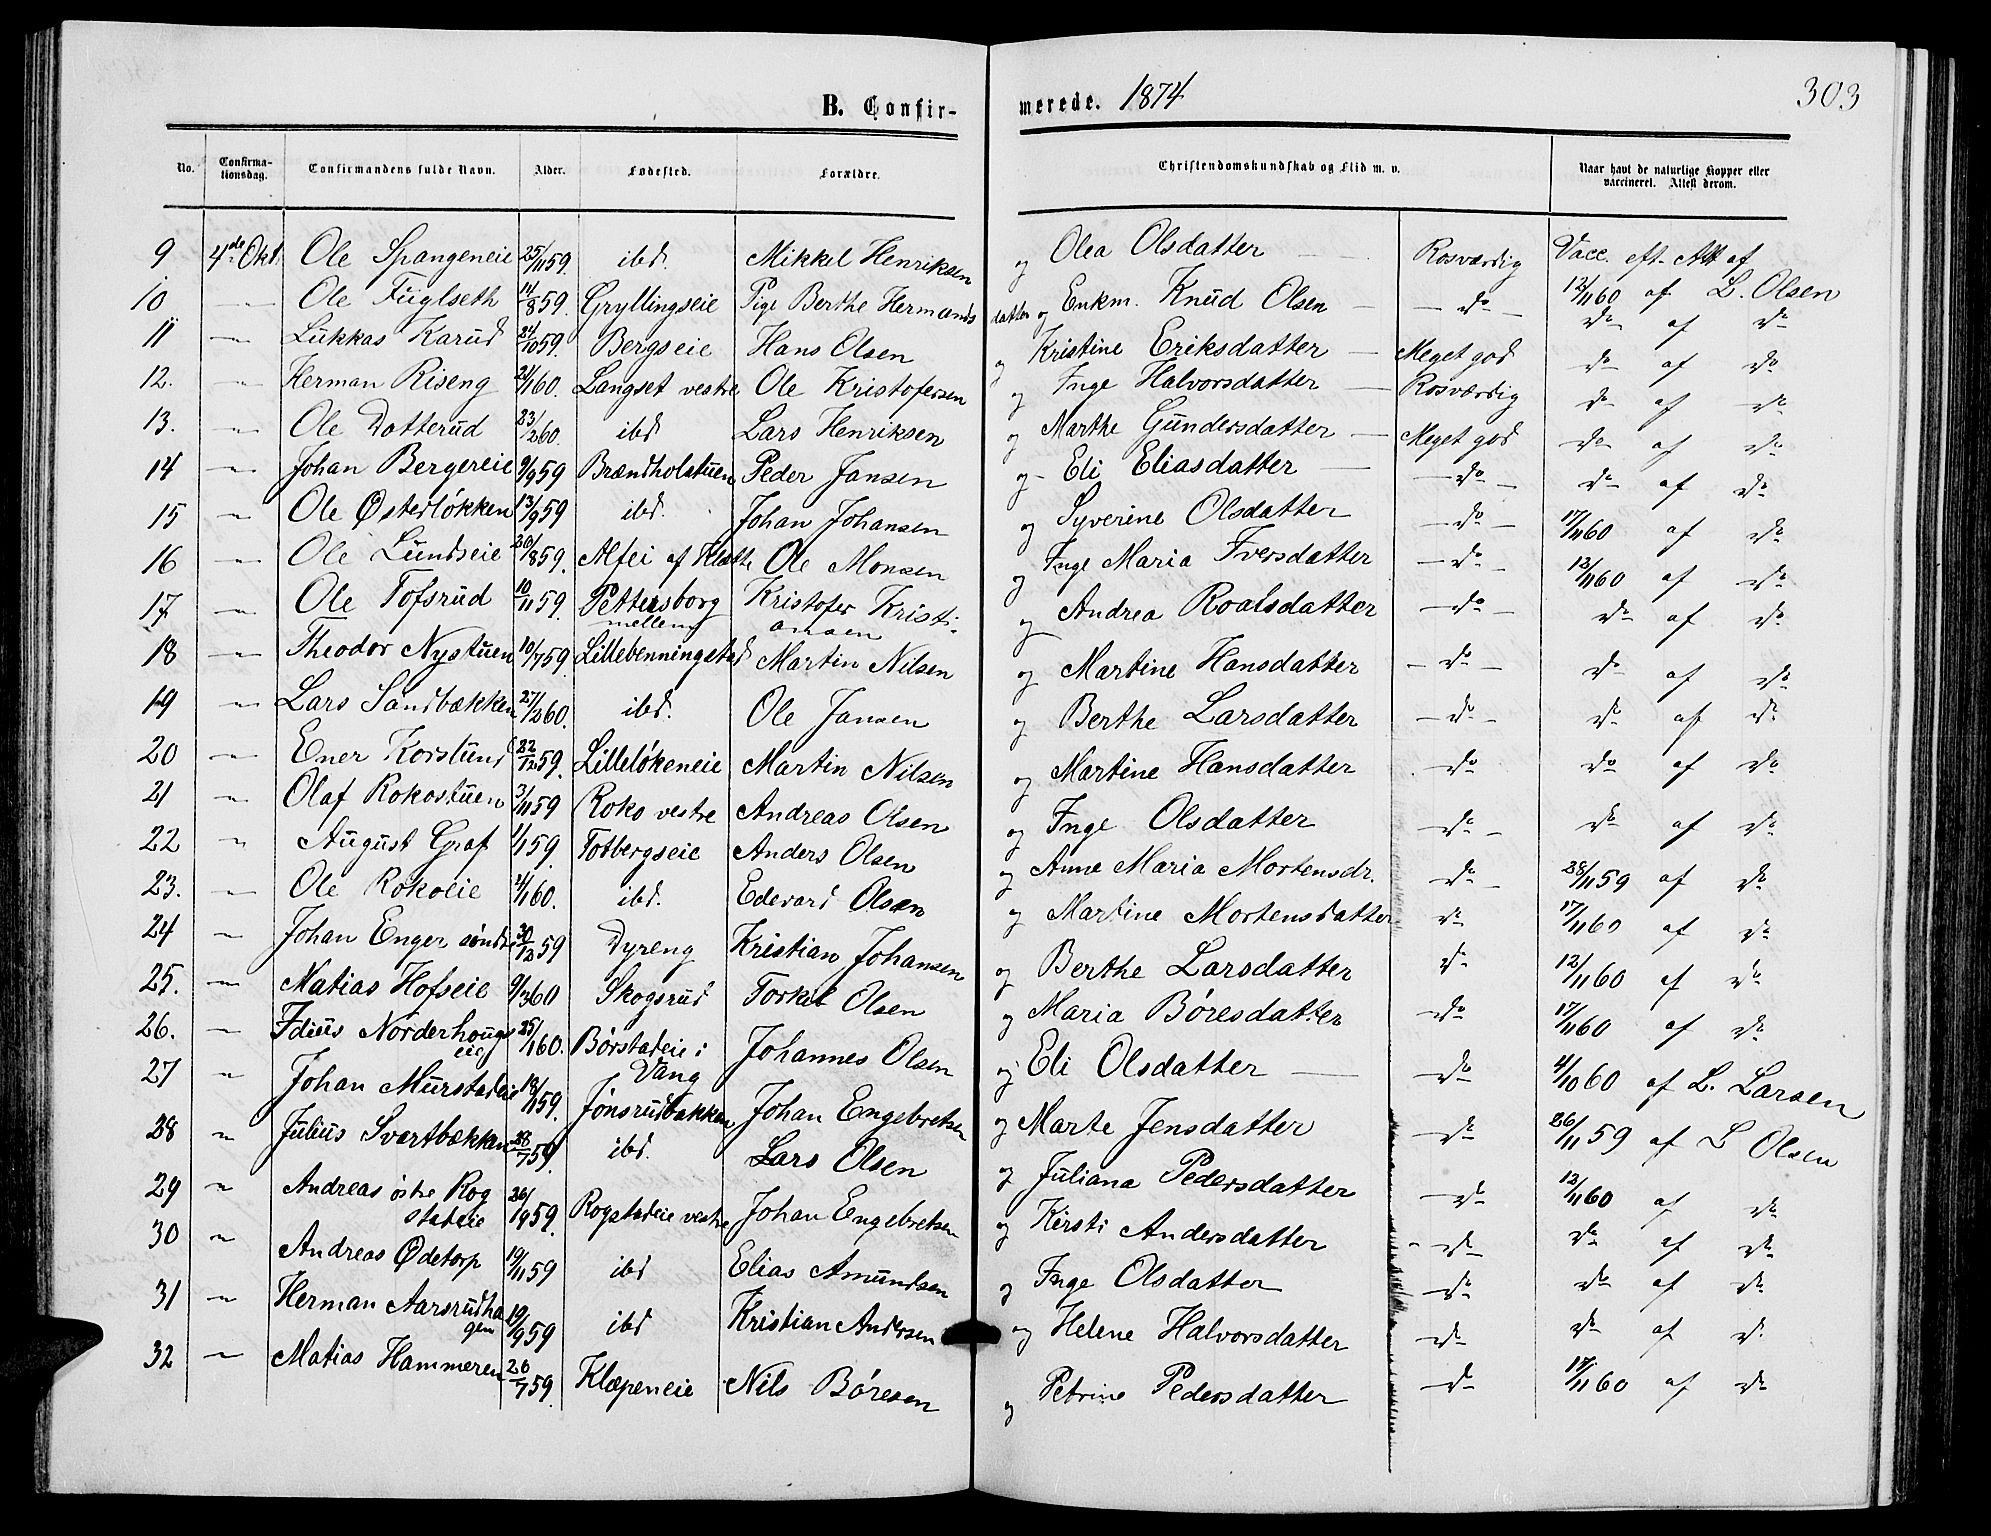 B. Confirmerede. 1874 303
No. Confirmationsdag. Confirmandens fulde Navn. Alder. Fødested. Forældre. Christendomskundskab og Flid m. v. Naar havt de naturlige Kopper eller vaccineret. Attest derom.
9 4de Okt. Ole Spangeneie 25/11 59. ibd. Mikkel Henriksen og Olea Olsdatter Rosværdig Vacc. eft. Att af
10 " Ole Fuglseth 14/8 59. Gryllingseie Pige Berthe Hermandsdatter og Enkm. Knud Olsen do 12/11 60 af L. Olsen
11 " Lukkas Karud 24/10 59. Bergseie Hans Olsen og Kristine Eriksdatter Meget god do af do
12. " Herman Riseng 21/1 60. Langset vestre Ole Kristofersen og Inge Halvorsdatter Rosværdig do af do
13. " Ole Dotterud 23/2 60. ibd Lars Henriksen og Marthe Gundersdatter Meget god do af do
14 " Johan Bergereie 9/9 59 Brændholstuen Peder Jansen og Eli Eliasdatter do do af do
15 " Ole Østerløkken 13/9 59 ibd. Johan Johansen og Syverine Olsdatter do do af do
16 " Ole Lundseie 20/8 59. Alfei af Klætte Ole Monsen og Inge Maria Iversdatter do 17/11 60 af do
17 " Ole Tofsrud 10/11 59. Pettersborg mellem Kristofer Kristiansen og Andrea Roalsdatter do 12/11 60 af do
18 " Theodor Nystuen 10/7 59. Lillebenningstad Martin Nilsen og Martine Hansdatter do do af do
19 " Lars Sandbækken 27/2 60. ibd. Ole Jansen og Berthe Larsdatter do do af do
20 " Ener Korslund 22/12 59. Lilleløkeneie Martin Nilsen og Martine Hansdatter do do af do
21 " Olaf Rokostuen 3/11 59 Roko vestre Andreas Olsen og Inge Olsdatter do do af do
22 " August Graf 1/1 59. Totbergseie Anders Olsen og Anne Maria Mortensdr. do do af do
23. " Ole Rokoeie 2/1 60. ibd. Edevard Olsen og Martine Mortensdatter do 28/11 59 af do
24 " Johan Enger søndre 30/12 59 Dyreng Kristian Johansen og Berthe Larsdatter do 17/11 60 af do
25. " Matias Hofseie 9/3 60 Skogsrud Torkel Olsen og Maria Børesdatter do 12/11 60 af do
26. " Idius Norderhougseie 25/1 60. Børstadeie i Vang Johannes Olsen og Eli Olsdatter do 17/11 60 af do
27 " Johan Murstadeie 18/11 59. Jønsrudbakken Johan Engebretsen og Marte Jensdatter do 4/10 60 af L. Larsen
28 " Julius Svartbækken 28/7 59. ibd. Lars Olsen og Juliana Pedersdatter do 26/11 59 af L Olsen
29 " Andreas østre Rogstadeie 26/9 59. Rogstadeie vestre Johan Engebretsen og Kirsti Andersdatter do 12/11 60 af do
30 " Andreas Ødetorp 19/11 59 ibd Elias Amundsen og Inge Olsdatter do do af do
31 " Herman Aarsrudhagen 19/9 59 ibd Kristian Andersen og Helene Halvorsdatter do do af do
32 " Matias Hammeren 26/7 59. Klæpeneie Nils Børesen og Petrine Pedersdatter do 17/11 60 af do